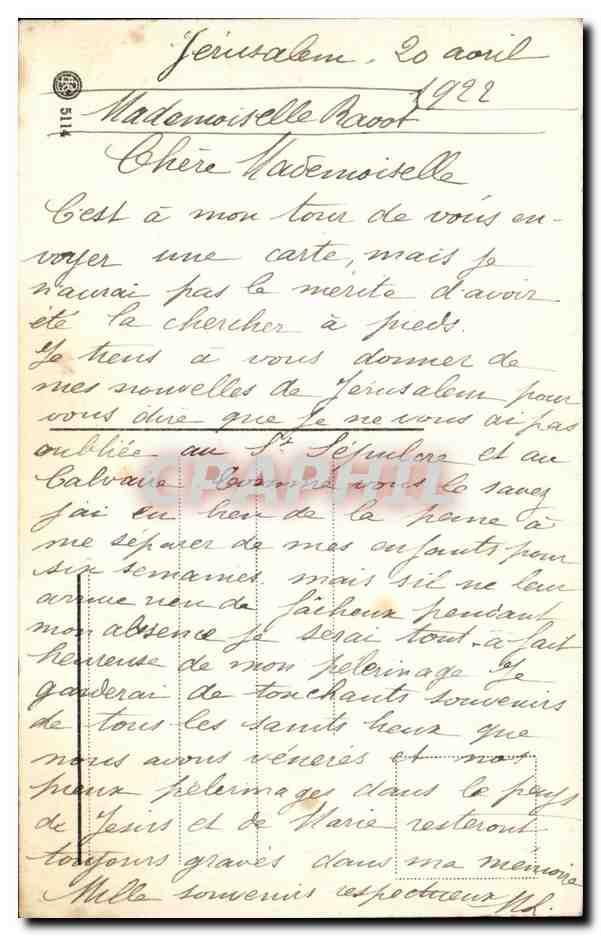 Jérusalem, 20 avril
1922
5114
Mademoiselle Ravot
Chère Mademoiselle
C'est à mon tour de vous en-
voyer une carte, mais je
n'aurai pas le mérite d'avoir
été la chercher à pieds.
Je tiens à vous donner de
mes nouvelles de Jérusalem pour
vous dire que je ne vous ai pas
oubliée au St Sépulcre et au
Calvaire. Comme vous le savez
j'ai eu bien de la peine à
me séparer de mes enfants pour
six semaines, mais s'il ne leur
arrive rien de fâcheux pendant
mon absence je serai tout-à-fait
heureuse de mon pèlerinage. Je
garderai de touchants souvenirs
de tous les saints lieux que
nous avons vénérés et nos
pieux pèlerinages dans le pays
de Jésus et de Marie resteront
toujours gravés dans ma mémoire
Mille souvenirs respectueux
CPAPHIL